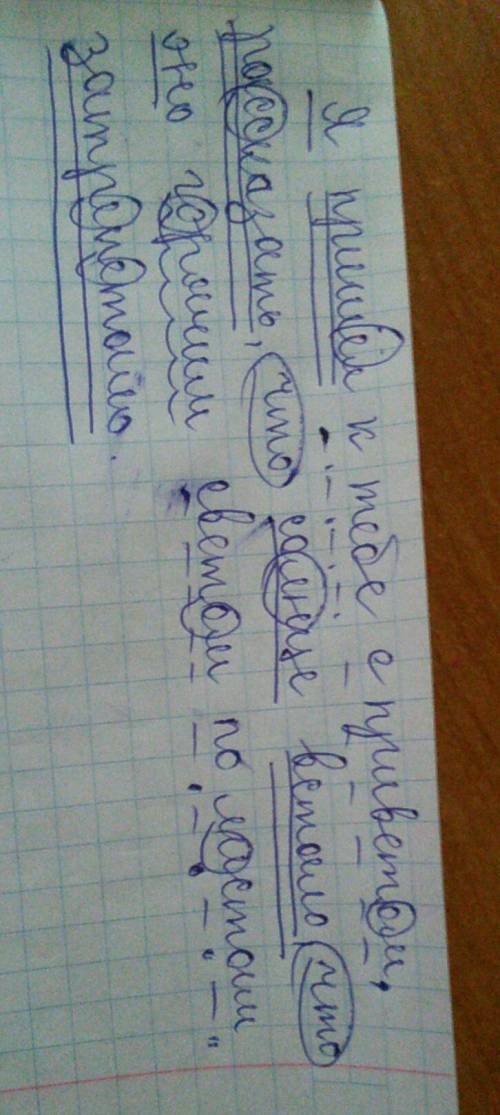 Я пришел к тебе с приветом,
рассказать, что солнце встало, что
оно горячим светом по листам
затрепетало.